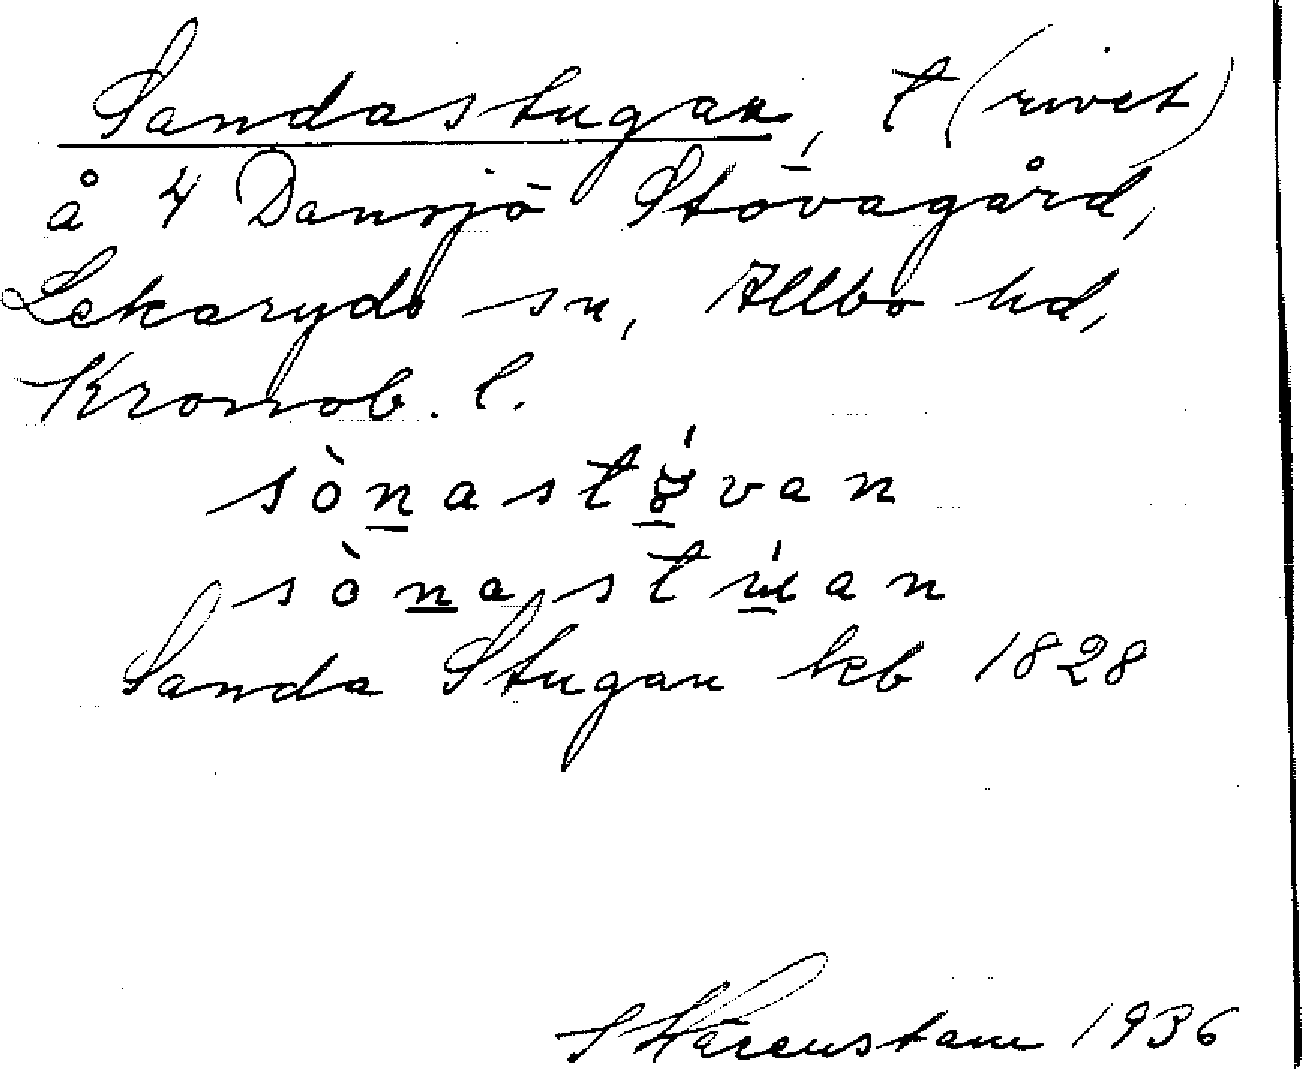 Sandastugan, t (rivet)
å 4 Dansjö Stövagård,
Lekaryds sn, Allbo hd,
Kronob. l.
sònast
sònast
Sanda Stugan kb 1828
S Härenstam 1936